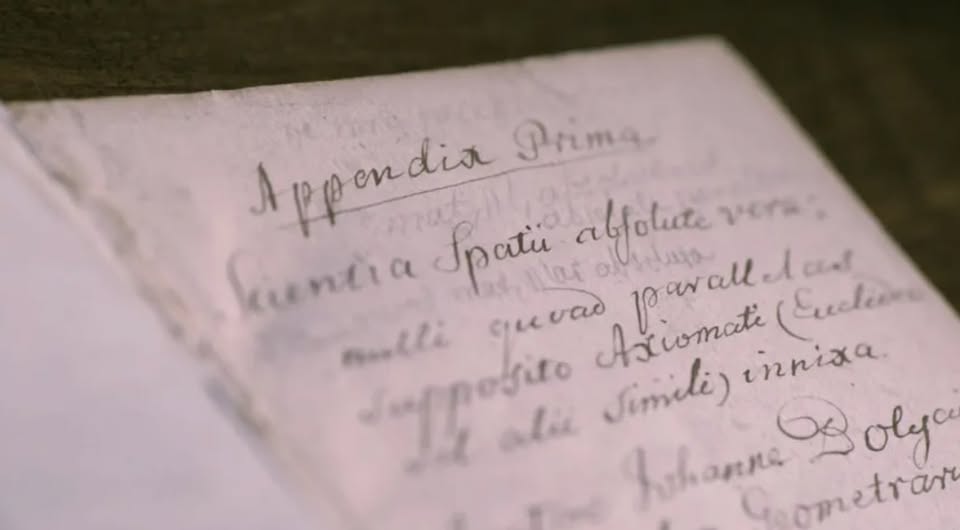 Appendix Prima
Scientia Spatii absolute vera:
nulli quoad parallelas
supposito Axiomati (Euclideo
vel alii simili) innixa.
Johanne Bolyai
Geometrarum